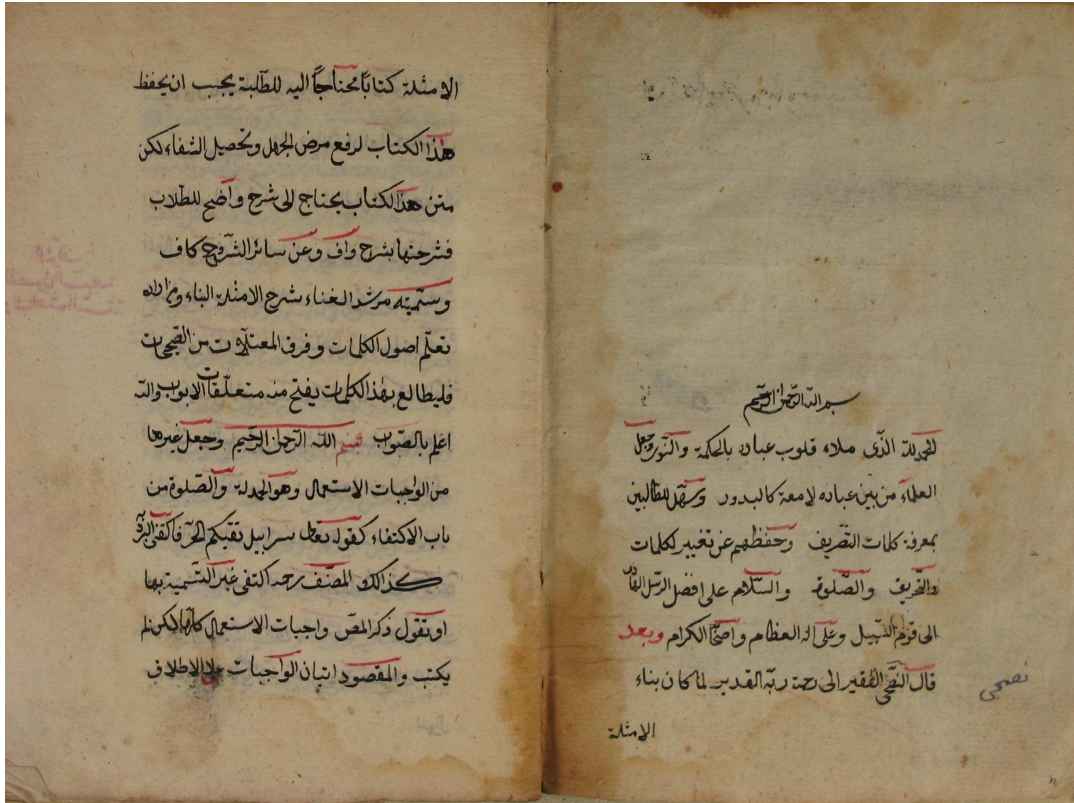 بسم الله الرحمن الرحيم
الحمد لله الذى ملاء قلوب عباده بالحكمة والنور وجعل
العلماء من بين عباده لامعة كالبدور وسهل للطالبين
بمعرفة كلمات التصريف وحفظهم عن تغيير الكلمات
والتحريف والصلوة والسلام على افضل الرسل
الى قوم السبيل وعلى اله العظام واصحابه الكرام وبعد
قال الفقير الى رحمة ربه القدير لما كان بناء
الامثلة
الامثلة كتابا محتاجا اليه للطلبة يجب ان يحفظ
هذا الكتاب لرفع مرض الجهل وتحصيل الشفاء لكن
متن هذا الكتاب يحتاج الى شرح واضح للطلاب
فشرحتها بشرح واف وعن سائر الشروح كاف
وسميته مرشد الغناء بشرح الامثلة البناء ومن اراد
تعلم اصول الكلمات وفرق المعتلات من الصحيحات
فليطالع بهذا الكلمات يفتح منه متعلقات الابواب والله
اعلم بالصواب بسم الله الرحمن الرحيم وجعل غيرها
من الواجبات الاستعمال وهو الحمدلة والصلوة من
باب الاكتفاء كقوله تعالى سرابيل تقيكم الحر فاكتفى البرد
كذالك المصنف رحمه اكتفى غير التسمية بها
او نقول ذكر المص واجبات الاستعمال كلها لكن لم
يكتب والمقصود اتيان الواجبات على الاطلاق